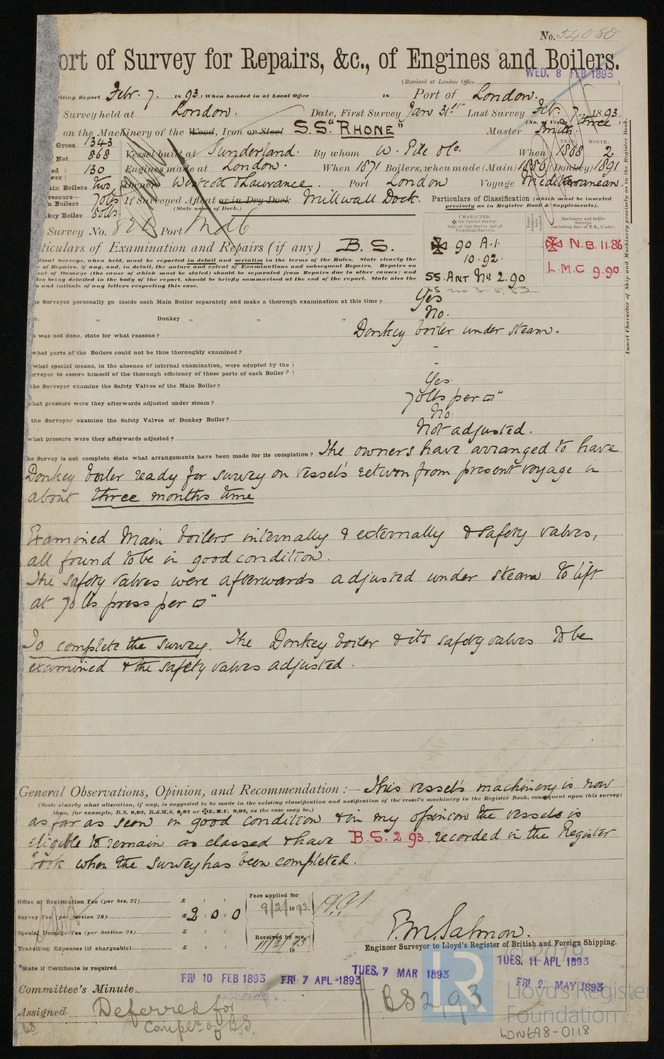 No. 54080
ort of Survey for Repairs, &c., of Engines and Boilers.
(Received at London Office WED. 8 FEB 1893
riting Report Feb. 7. 1893 When handed in at Local Office 18 Port of London.
Survey held at London. Date, First Survey Jan 31st Last Survey Feb. 7 1893.
on the Machinery of the Wood, Iron or Steel S.S. "RHONE" Master Smith.
Gross 1343
Net 868 Vessel built at Sunderland. By whom W. Pile & Co. When 1868 2
130 Engines made at London. When 1871 Boilers, when made (Main) 1886 (Donkey) 1891
ain Boilers two Owners Westcott & Laurance. Port London Voyage Mediterranean
n Boilers 70lbs If Surveyed Afloat or in Dry Dock Millwall Dock.
(State name of Dock.)
nkey Boiler 60lbs
Particulars of Classification (which must be inserted precisely as in Register Book & Supplements).
Survey No. Port
ticulars of Examination and Repairs (if any) B.S.
90 A.1.
10.92.
SS. Ant No 2.90
N.B. 11.86
L.M.C 9.90
Insert Character of Ship and Machinery precisely as in the Register Book.
he Surveyor personally go inside each Main Boiler separately and make a thorough examination at this time? Yes
" Donkey " " No.
was not done, state for what reasons? Donkey boiler under steam.
what parts of the Boilers could not be thus thoroughly examined? -
what special means, in the absence of internal examination, were adopted by the
urveyor to assure himself of the thorough efficiency of those parts of each Boiler? -
the Surveyor examine the Safety Valves of the Main Boiler? Yes.
hat pressure were they afterwards adjusted under steam? 70lbs per □"
the Surveyor examine the Safety Valves of Donkey Boiler? No.
what pressure were they afterwards adjusted? Not adjusted.
he Survey is not complete state what arrangements have been made for its completion? The owners have arranged to have
Donkey boiler ready for survey on vessel's return from present voyage in
about three months time
Examined Main boilers internally & externally & safety valves,
all found to be in good condition.
The safety valves were afterwards adjusted under steam to lift
at 70 lbs press per □"
To complete the survey. The Donkey boiler & its safety valves to be
examined & the safety valves adjusted.
General Observations, Opinion, and Recommendation:— This vessel's machinery is now
(State clearly what alteration, if any, is suggested to be made in the existing classification and notification of the vessel's machinery in the Register Book, consequent upon this survey;
as far as seen in good condition & in my opinion the vessel is
eligible to remain as classed & have B.S. 2.93 recorded in the Register
book when the survey has been completed.
Office or Registration Fee (per Sec. 27) £
Survey Fee (per Section 28) £2 . 0 . 0
Special Damage Fee (per Section 28) £
Travelling Expenses (if chargeable) £
Fees applied for
9/2/1893.
Received by me,
11/2/93
F. M. Salmon.
Engineer Surveyor to Lloyd's Register of British and Foreign Shipping.
*State if Certificate is required
Committee's Minute FRI 10 FEB 1893 FRI 7 APL 1893 TUES. 7 MAR 1893 TUES. 11 APL 1893 FRI. 2 MAY 1893
Assigned Deferred for
Compln of B.S.
BS 2,93
© 2019
LR
Lloyd's Register
Foundation
LON698-0118